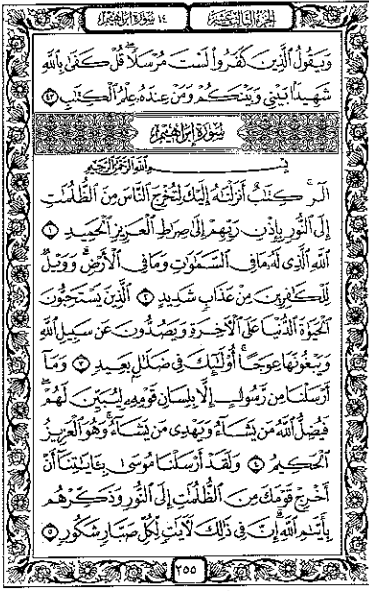 الجزء الثالث عشر
١٤ سورة إبراهيم
وَيَقُولُ الَّذِينَ كَفَرُوا لَسْتَ مُرْسَلًا قُلْ كَفَىٰ بِاللَّهِ
شَهِيدًا بَيْنِي وَبَيْنَكُمْ وَمَنْ عِندَهُ عِلْمُ الْكِتَابِ ٤٣
سُورَةُ إِبْرَاهِيمَ
بِسْمِ اللَّهِ الرَّحْمَٰنِ الرَّحِيمِ
الٓر كِتَابٌ أَنزَلْنَاهُ إِلَيْكَ لِتُخْرِجَ النَّاسَ مِنَ الظُّلُمَاتِ
إِلَى النُّورِ بِإِذْنِ رَبِّهِمْ إِلَىٰ صِرَاطِ الْعَزِيزِ الْحَمِيدِ ١
اللَّهِ الَّذِي لَهُ مَا فِي السَّمَاوَاتِ وَمَا فِي الْأَرْضِ وَوَيْلٌ
لِّلْكَافِرِينَ مِنْ عَذَابٍ شَدِيدٍ ٢ الَّذِينَ يَسْتَحِبُّونَ
الْحَيَاةَ الدُّنْيَا عَلَى الْآخِرَةِ وَيَصُدُّونَ عَن سَبِيلِ اللَّهِ
وَيَبْغُونَهَا عِوَجًا أُولَٰئِكَ فِي ضَلَالٍ بَعِيدٍ ٣ وَمَا
أَرْسَلْنَا مِن رَّسُولٍ إِلَّا بِلِسَانِ قَوْمِهِ لِيُبَيِّنَ لَهُمْ
فَيُضِلُّ اللَّهُ مَن يَشَاءُ وَيَهْدِي مَن يَشَاءُ وَهُوَ الْعَزِيزُ
الْحَكِيمُ ٤ وَلَقَدْ أَرْسَلْنَا مُوسَىٰ بِآيَاتِنَا أَنْ
أَخْرِجْ قَوْمَكَ مِنَ الظُّلُمَاتِ إِلَى النُّورِ وَذَكِّرْهُم
بِأَيَّامِ اللَّهِ إِنَّ فِي ذَٰلِكَ لَآيَاتٍ لِّكُلِّ صَبَّارٍ شَكُورٍ ٥
٢٥٥